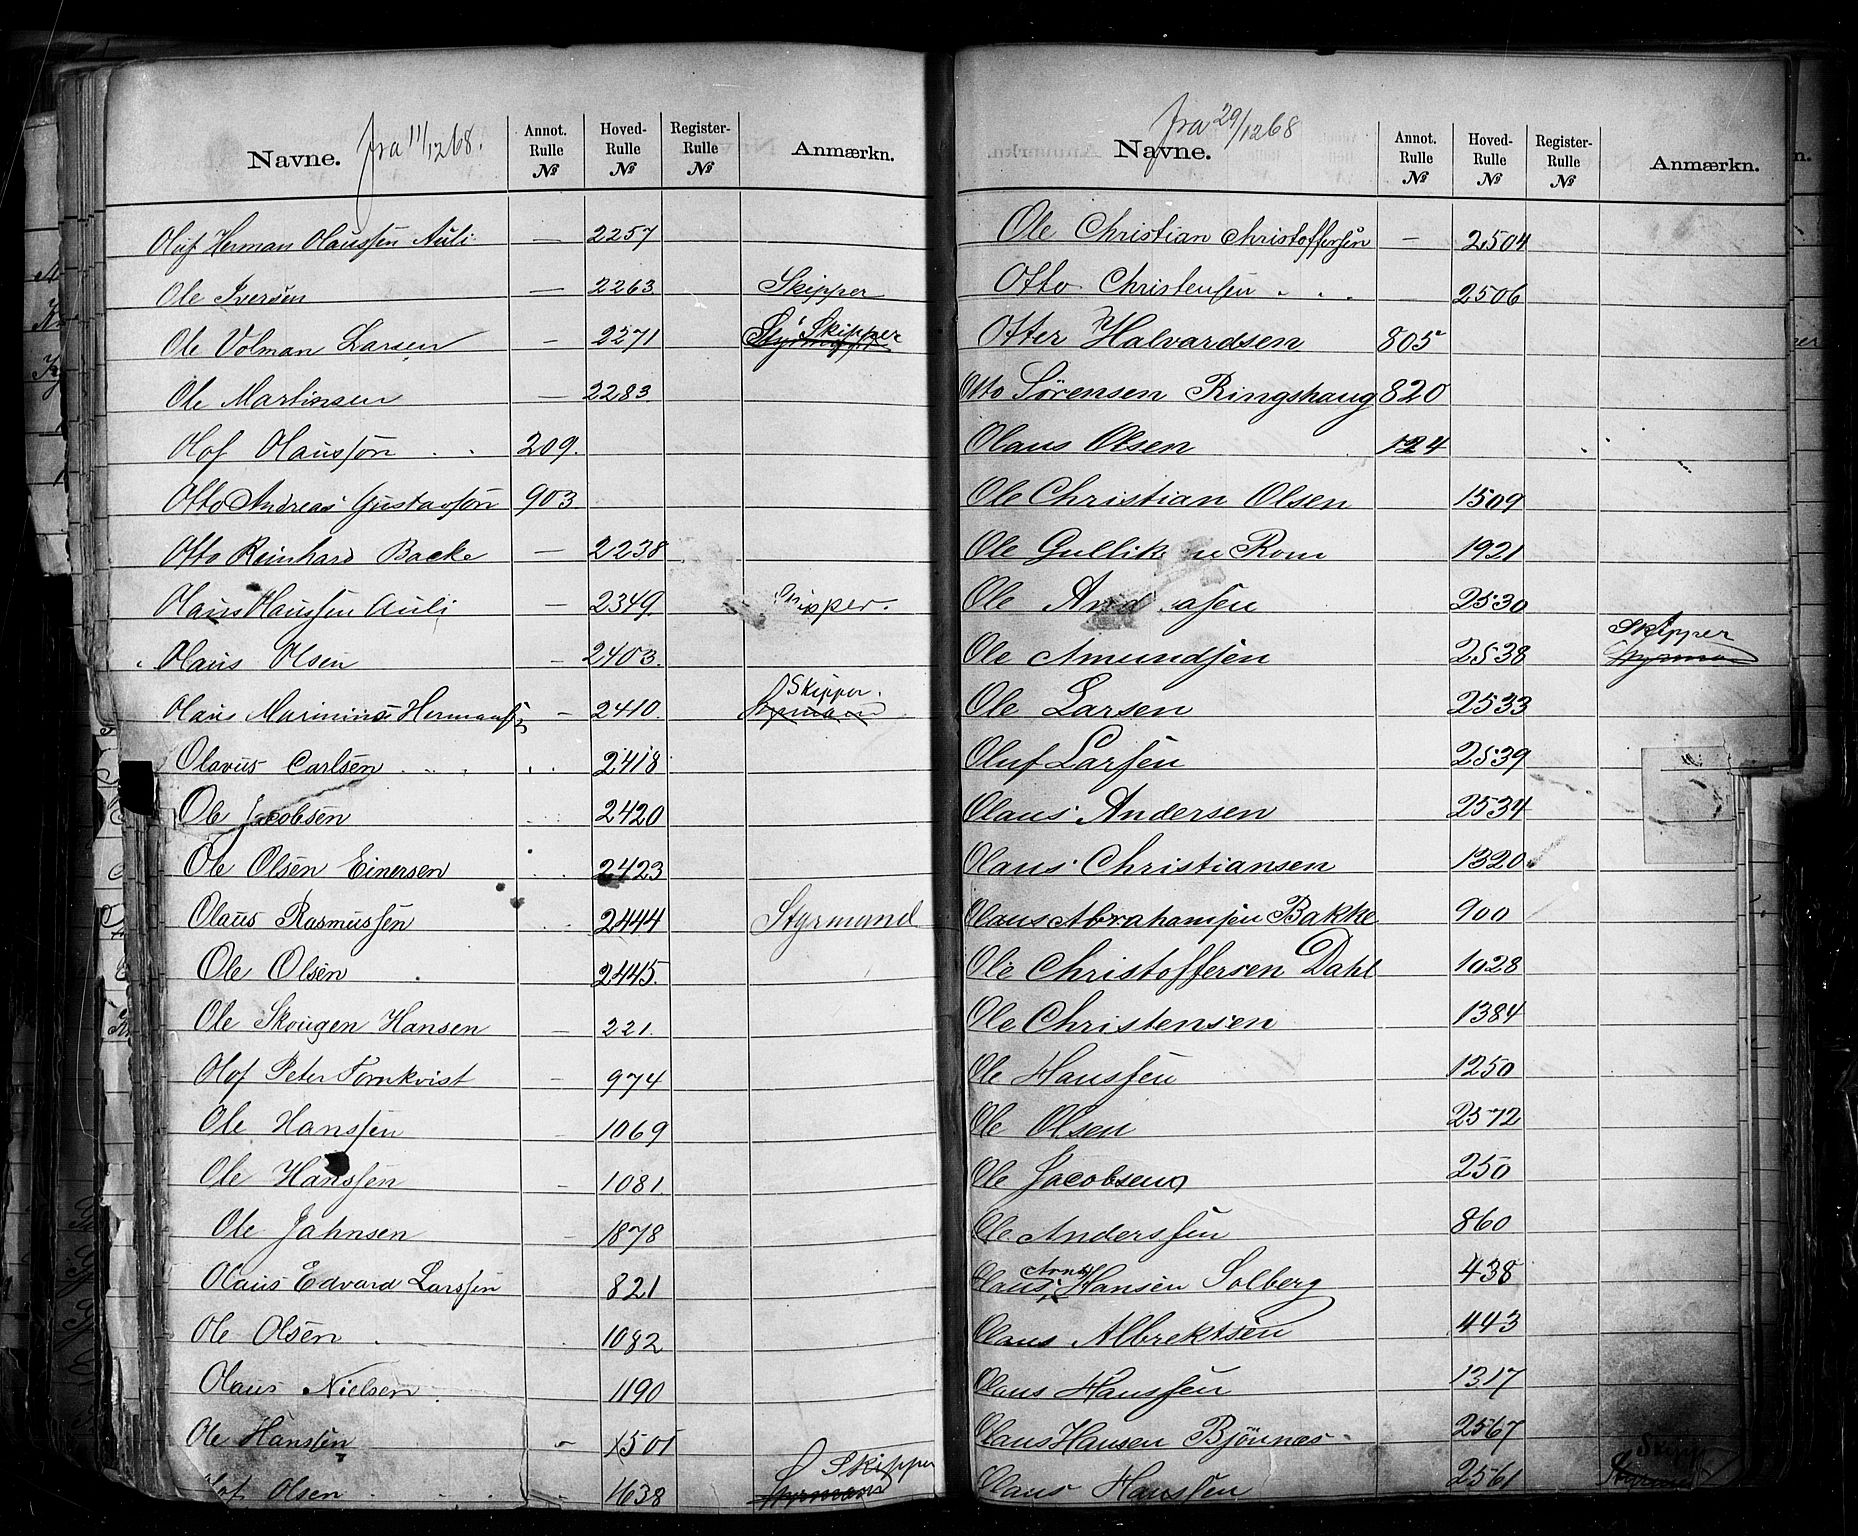 Navne. fra 11/12 68. Annot. Rulle № Hoved-Rulle № Register-Rulle № Anmærkn.
Oluf Herman Olaussen Auli — 2257
Ole Iversen — 2263 Skipper
Ole Volman Larsen — 2271 Skipper
Ole Martinsen — 2283
Olof Olausson . . 209.
Otto Andreas Gustavson 903
Otto Reinhard Backe — 2238
Olaus Haussen Auli — 2349 Skipper.
Olaus Olsen — 2403.
Olaus Marinius Hermans — 2410. Skipper. Styrmand
Olavus Carlsen 2418
Ole Jacobsen 2420
Ole Olsen Einersen 2423
Olaus Rasmussen 2444 Styrmand
Ole Olsen 2445.
Ole Skougen Hansen — 221.
Olof Peter Fornkvist — 974
Ole Hanssen 1069
Ole Hanssen — 1081.
Ole Jahnsen — 1878
Olaus Edvard Larssen 821
Ole Olsen 1082
Olaus Nielsen 1190
Ole Hanssen — 1501
Olof Olsen 1638 Skipper Styrmand
Navne. fra 29/12 68 Annot. Rulle № Hoved-Rulle № Register-Rulle № Anmærkn.
Ole Christian Christoffersen — 2504
Otto Christensen . . . 2506
Otter Halvardsen 805
Otto Sørensen Ringshaug 820
Olaus Olsen 124
Ole Christian Olsen 1509
Ole Gulliksen Rom 1921
Ole Andreasen 2530
Ole Amundsen 2538 Skipper Styrmand
Ole Larsen 2533
Oluf Larsen 2539
Olaus Andersen 2534
Olaus Christiansen 1320
Olaus Abrahamsen Bakke 900
Ole Christoffersen Dahl 1028
Ole Christensen 1384
Ole Hanssen 1250
Ole Olsen 2572
Ole Jacobsen 250
Ole Anderssen 860
Olaus Arnt Hansen Solberg 438
Olaus Albrektsen 443
Olaus Hanssen 1317
Olaus Hansen Bjønnes 2567
Olaus Hanssen 2561 Skipper Styrmand